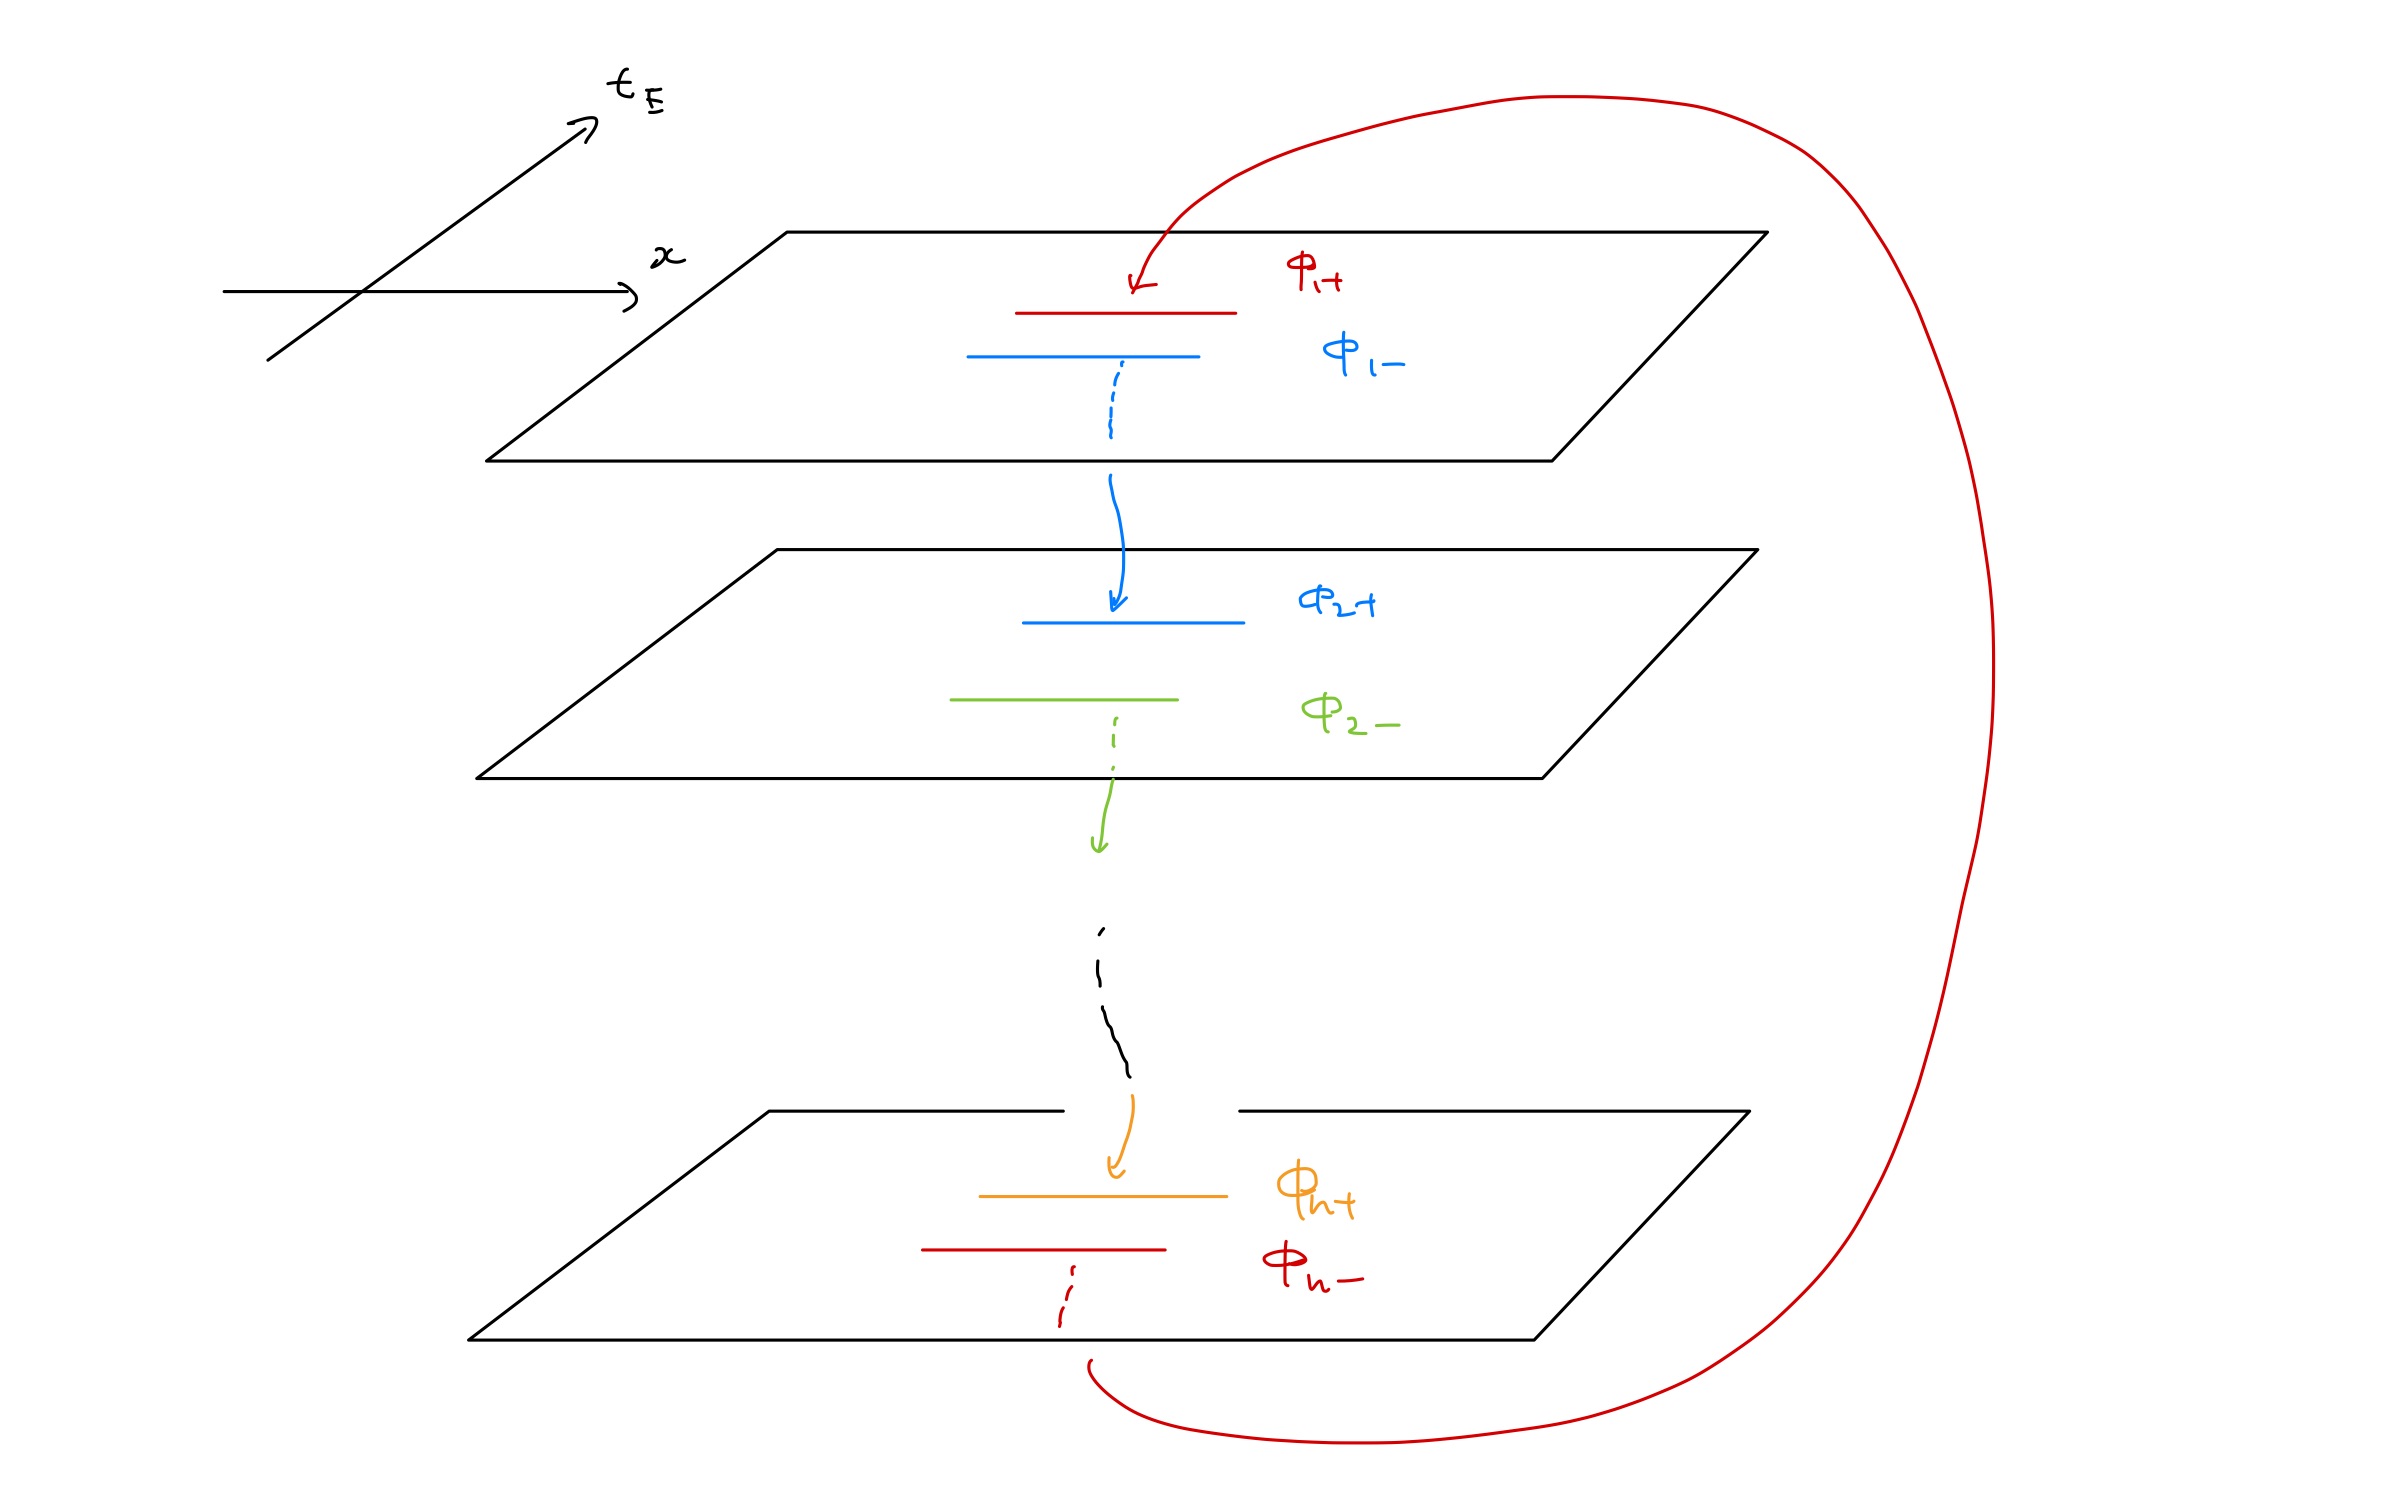 t_E
x
ϕ₁₊
ϕ₁₋
ϕ₂₊
ϕ₂₋
ϕₙ₊
ϕₙ₋